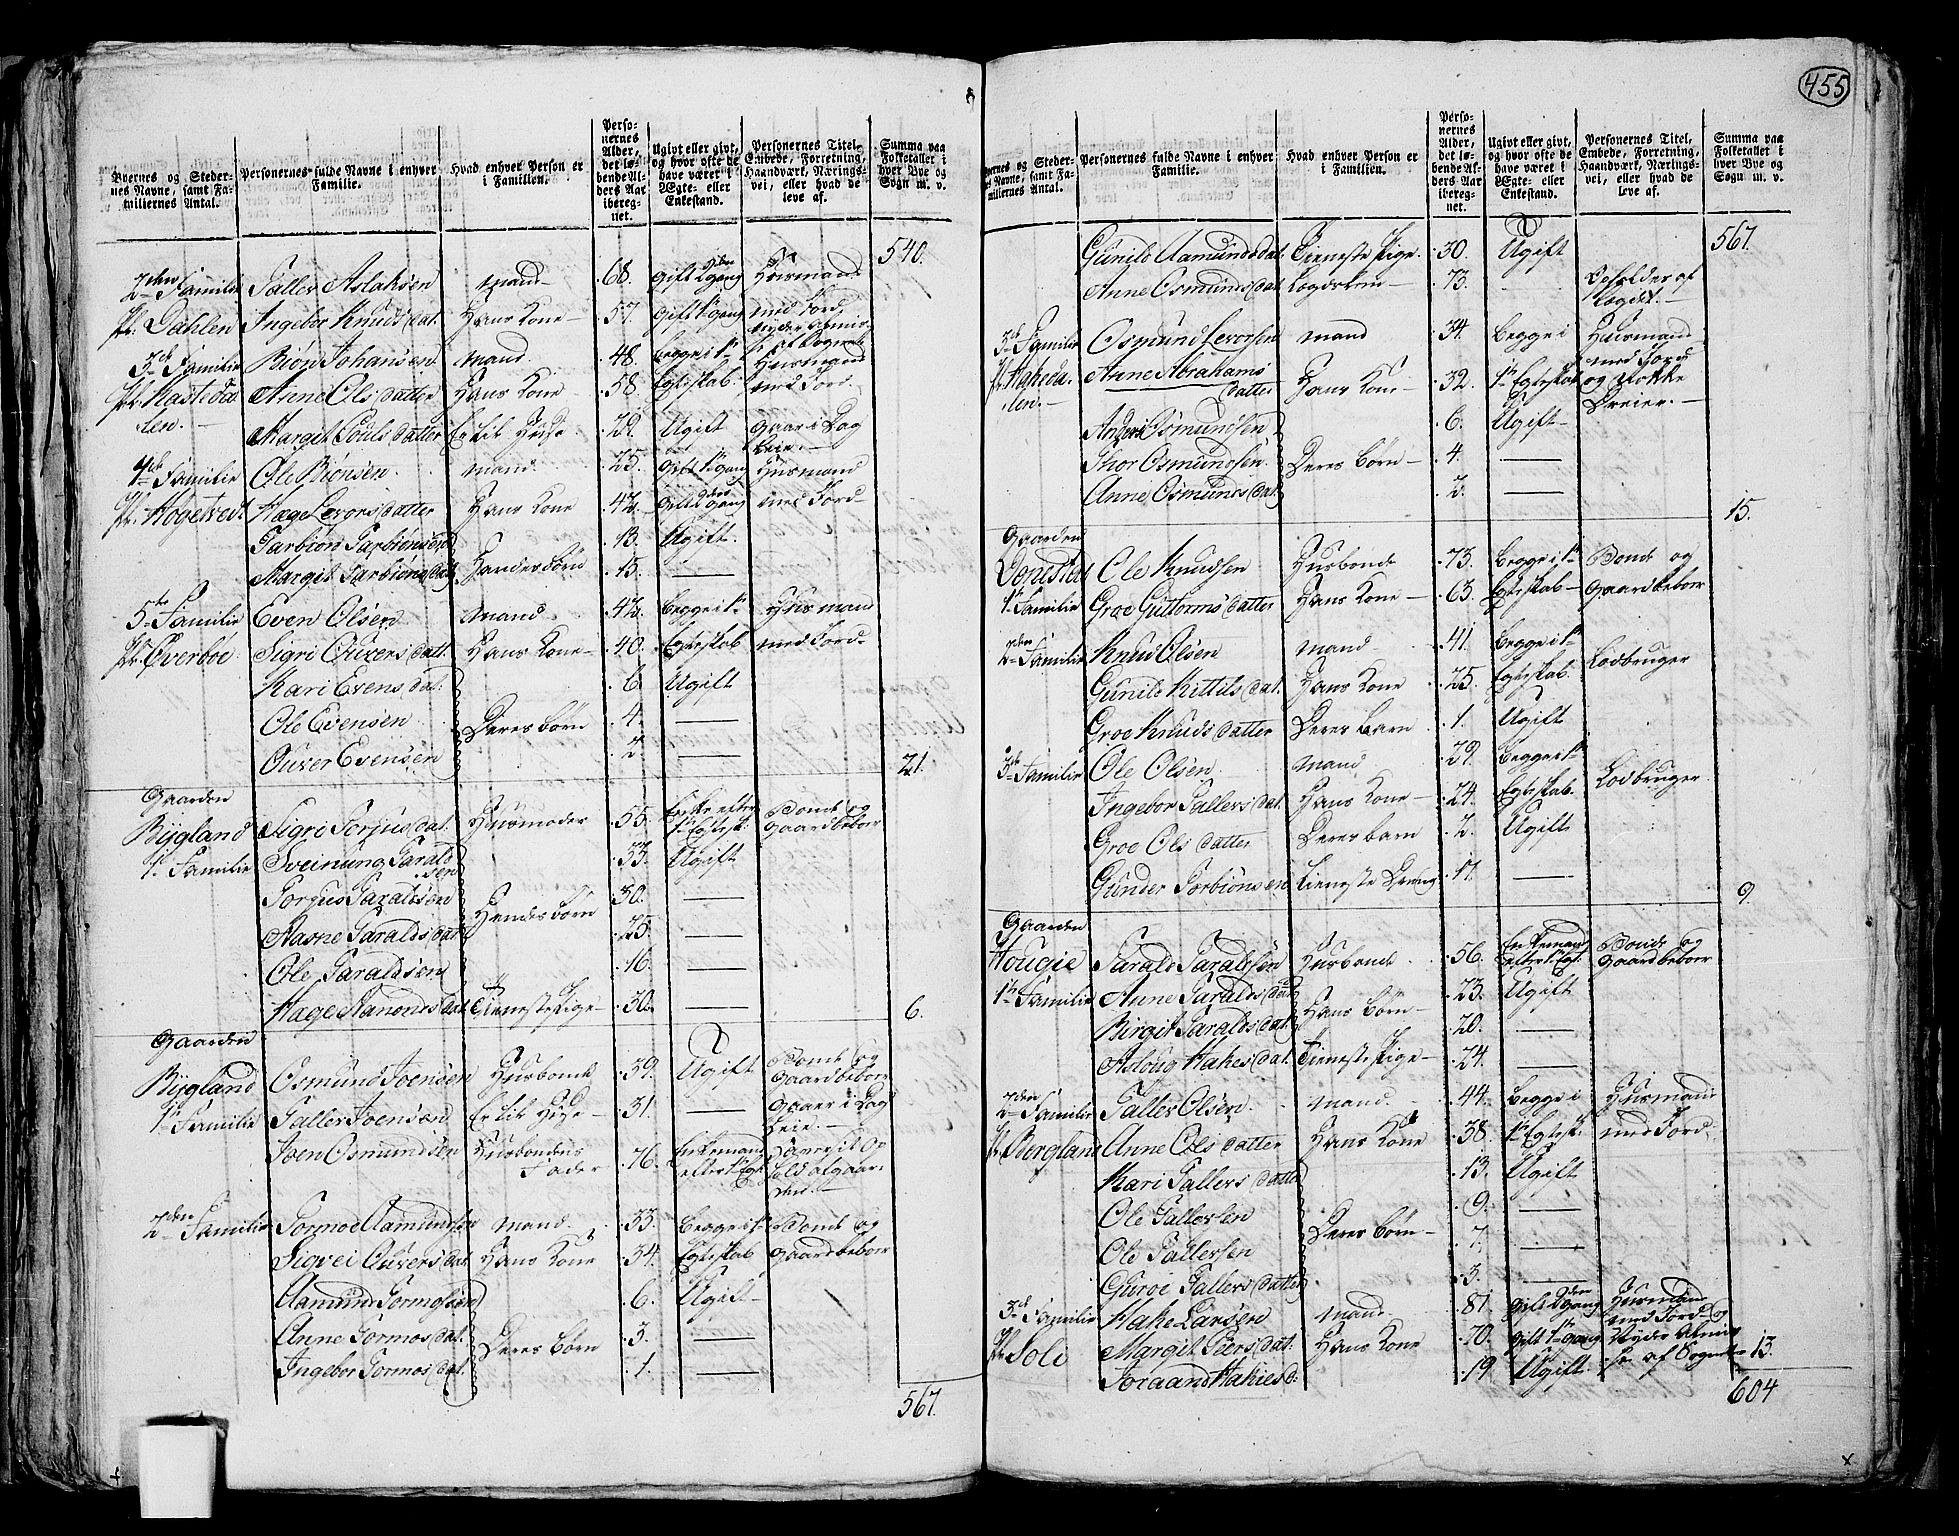 455
Byernes og Steder-
nes Navne, samt Fa-
miliernes Antal.
Personernes fulde Navne i enhver
Familie.
Hvad enhver Person er
i Familien.
Perso-
nernes
Alder,
det lø-
bende Al-
ders Aar
iberegnet.
Ugivt eller givt,
og hvor ofte de
have været i
Ægte- eller
Enkestand.
Personernes Titel,
Embede, Forretning,
Haandværk, Nærings-
vei, eller hvad de
leve af.
Summa paa
Folketallet i
hver Bye og
Sogn m. v.
540.
2den Familie Taller Aslaksen mand 68. gift 2den gang Huusmand
pl. Dahlen Ingebor Knudsdat. Hans Kone 57. gift 1te gang med Jord,
nyder almis-
se af Sognet
3de Familie Biøn Johansen mand. 48. begge i 1te Huusmand
pl. Kasteda- Anne Olsdatter Hans Kone 58. Egteskab. med Jord.
len. Margit Poulsdatter Er lit Huse 29. Ugift gaar i Dag
Leie.
4de Familie Ole Biønsen. mand 25. gift 1te gang Huusmand
pl. Hogetvedt Hæge Levorsdatter Hans Kone 42. gift 2den gang med Jord
Tarbiøn Tarbiønsen 13. Ugift.
Margit Tarbiønsdat. Hendes børn 15. —
5te Familie Even Olsen mand 42. begge i 1te Huusman
pl. Øverboe Sigri Ouversdatt. Hans Kone 40. Egteskab med Jord
Kari Evensdat. 6. Ugift
Ole Evensen Deres børn 4. —
Ouver Evensen 2. — 21.
Gaarden
Bÿgland Sigri Torjusdat. Huusmoder 55. Enke efter 1te Egtesk. Bonde og Gaardbeboer
1te Familie Sveinung Tarald-
sen 33. Ugift
Torjus Taraldsen 30. —
Aasne Taraldsdat. Hendes børn 25. —
Ole Taraldsen 16. —
Hæge Aanonsdat. Tieneste Pige 30. — 6.
Gaarden
Bÿgland Osmund Joensen Huusbonde 39. Ugift Bonde og Gaardbeboer
1te Familie Taller Joensen Er lit Huse 31. — Gaaer i Dag Leie.
Joen Osmundsen Huusbondens Fader 76. Enkemand efter 1te Egt.
2den Familie Tormoe Aamundsen mand 33. begge i 1te Bonde og
Sigvei Ouversdat. Hans Kone 34. Egteskab Gaardbeboer
Aamund Tormosen 6. Ugift
Anne Tormosdat. Deres børn 3. —
Ingebor Tormosdat. 1. —
567.
Byernes og Steder-
nes Navne, samt Fa-
miliernes Antal.
Personernes fulde Navne i enhver
Familie.
Hvad enhver Person er
i Familien.
Perso-
nernes
Alder,
det lø-
bende Al-
ders Aar
iberegnet.
Ugivt eller givt,
og hvor ofte de
have været i
Ægte- eller
Enkestand.
Personernes Titel,
Embede, Forretning,
Haandværk, Nærings-
vei, eller hvad de
leve af.
Summa paa
Folketallet i
hver Bye og
Sogn m. v.
567.
Gunild Aamundsdat. Tieneste Pige. 30. Ugift
Anne Osmundsdat. 73. -
3de Familie Osmund Levorsen mand 34. begge i Huusmand
pl. Kakeda- Anne Abrahams- med Jord
len. datter Hans Kone 32. 1te Egteskab og Rokke
Dreier.
Anders Osmundsen 6. Ugift
Thor Osmundsen. Deres børn 4. —
Anne Osmundsdat. 2. —
15.
Gaarden
Ole Knudsen Huusbonde 73. begge i 1te Bonde og
1te Familie Groe Guttormsdatter Hans Kone 63. Egteskab Gaardbeboer
2den Familie Knud Olsen mand 41. begge i 1te Lodbruger
Gunild Kittilsdat. Hans Kone 25. Egteskab.
Groe Knudsdatter Deres barn 1. Ugift
3de Familie Ole Olsen mand 29. begge i 1te Lodbruger
Ingebor Tallersdat. Hans Kone 24. Egteskab.
Groe Olsdatter Deres barn 2. Ugift
Gunder Torbiønsen Tieneste Dreng 17. —
9.
Gaarden
Hougie Tarald Taraldsen Huusbonde 56. Enkemand efter 1te Egt. Bonde og Gaardbeboer
1te Familie Anne Taraldsdat. 23. Ugift
Birgit Taraldsdat. Hans børn 20. —
Asloug Hakesdat. Tieneste Pige 24. —
2den Familie Taller Olsen. mand 44. begge i Huusmand
pl. Bergland Anne Olsdatter Hans Kone 38. 1te Egtesk. med Jord.
Kari Tallersdatter 13. Ugift
Ole Tallersen 9. —
Ole Tallersen Deres børn 7. —
Guroe Tallersdatter 3. —
3de Familie Hake Larsen mand 81. gift 2den gang Huusmand
med Jord og
pl. Soli Margit Peersdat. Hans Kone 70. gift 1te gang Nyder Almis-
Joraand Hakiesd. 19 Ugift se af Sognet 13.
604